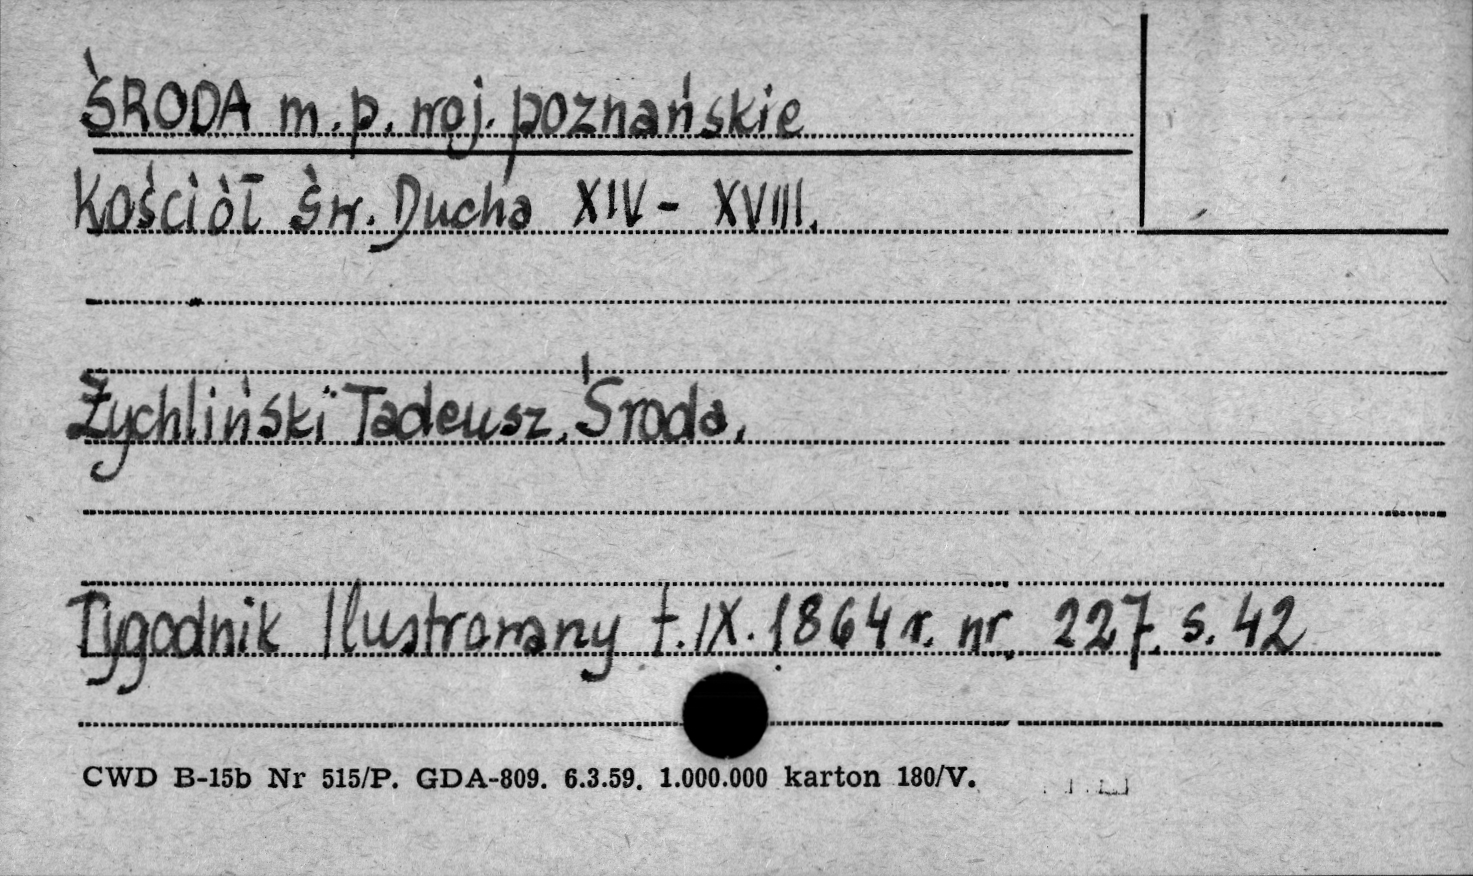 ŚRODA m.p. woj. poznańskie
Kościół Św. Ducha XIV - XVIII.
Żychliński Tadeusz. Środa.
Tygodnik Ilustrowany t.IX. 1864 r. nr. 227. s. 42
CWD B-15b Nr 515/P. GDA-809. 6.3.59. 1.000.000 karton 180/V.